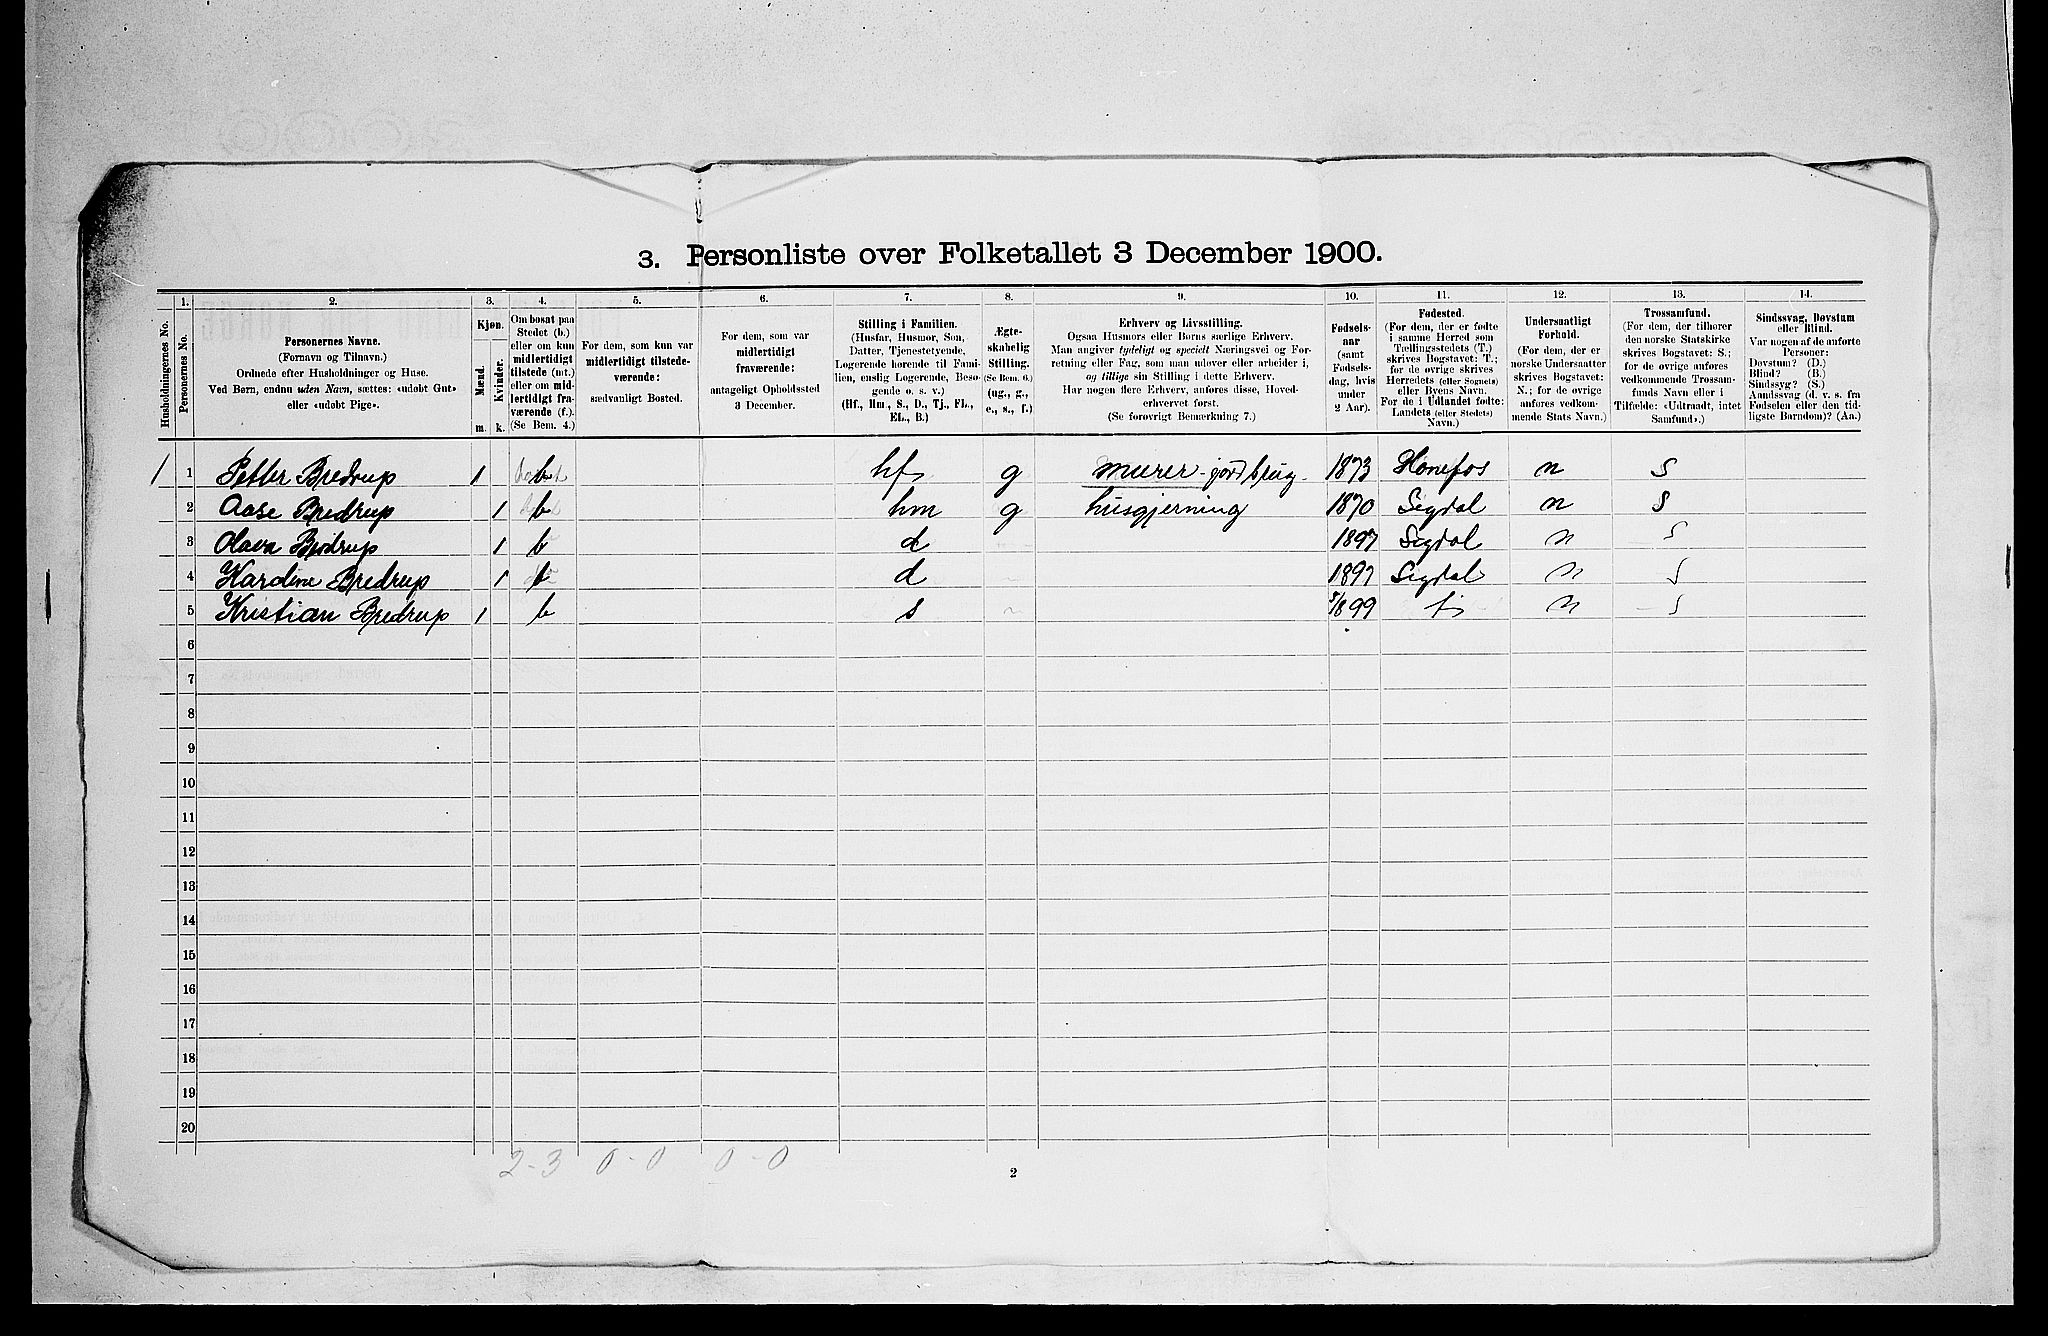 3. Personliste over Folketallet 3 December 1900.
1. 2. 3. 4. 5. 6. 7. 8. 9. 10. 11. 12. 13. 14.
Husholdningernes No.
Personernes No.
Personernes Navne.
(Fornavn og Tilnavn.)
Ordnede efter Husholdninger og Huse.
Ved Børn, endnu uden Navn, sættes: «udøbt Gut»
eller «udøbt Pige».
Kjøn.
Mænd.
Kvinder.
m. k.
Om bosat paa
Stedet (b.)
eller om kun
midlertidigt
tilstede (mt.)
eller om mid-
lertidigt fra-
værende (f.)
(Se Bem. 4.)
For dem, som kun var
midlertidigt tilstede-
værende:
sædvanligt Bosted.
For dem, som var
midlertidigt
fraværende:
antageligt Opholdssted
3 December.
Stilling i Familien.
(Husfar, Husmor, Søn,
Datter, Tjenestetyende,
Logerende hørende til Fami-
lien, enslig Logerende, Besø-
gende o. s. v.)
(Hf., Hm., S., D., Tj., Fl.,
El., B.)
Ægte-
skabelig
Stilling.
(Se Bem. 6.)
(ug., g.,
e., s., f.)
Erhverv og Livsstilling.
Ogsaa Husmors eller Børns særlige Erhverv.
Man angiver tydeligt og specielt Næringsvei og For-
retning eller Fag, som man udøver eller arbeider i,
og tillige sin Stilling i dette Erhverv.
Har nogen flere Erhverv, anføres disse, Hoved-
erhvervet først.
(Se forøvrigt Bemærkning 7.)
Fødsels-
aar
(samt
Fødsels-
dag, hvis
under
2 Aar).
Fødested.
(For dem, der er fødte
i samme Herred som
Tællingsstedets (T.)
skrives Bogstavet: T.;
for de øvrige skrives
Herredets (eller Sognets)
eller Byens Navn.
For de i Udlandet fødte:
Landets (eller Stedets)
Navn.)
Undersaatligt
Forhold.
(For dem, der er
norske Undersaatter
skrives Bogstavet:
N.; for de øvrige
anføres vedkom-
mende Stats Navn.)
Trossamfund.
(For dem, der tilhører
den norske Statskirke
skrives Bogstavet: S.;
for de øvrige anføres
vedkommende Trossam-
funds Navn eller i
Tilfælde: «Udtraadt, intet
Samfund».)
Sindssvag, Døvstum
eller Blind.
Var nogen af de anførte
Personer:
Døvstum? (D.)
Blind? (B.)
Sindssyg? (S.)
Aandssvag (d. v. s. fra
Fødselen eller den tid-
ligste Barndom)? (Aa.)
1 1 Petter Bredrup 1 b hf g murer - jordbrug 1873 Hønefos n S
2 Aase Bredrup 1 b hm g husgjerning 1870 Sigdal n S
3 Olava Bredrup 1 b d 1897 Sigdal n S
4 Kardine Bredrup 1 b d 1897 Sigdal n S
5 Kristian Bredrup 1 b s 1899 n S
6
7
8
9
10
11
12
13
14
15
16
17
18
19
20
2-3 0-0 0-0
2